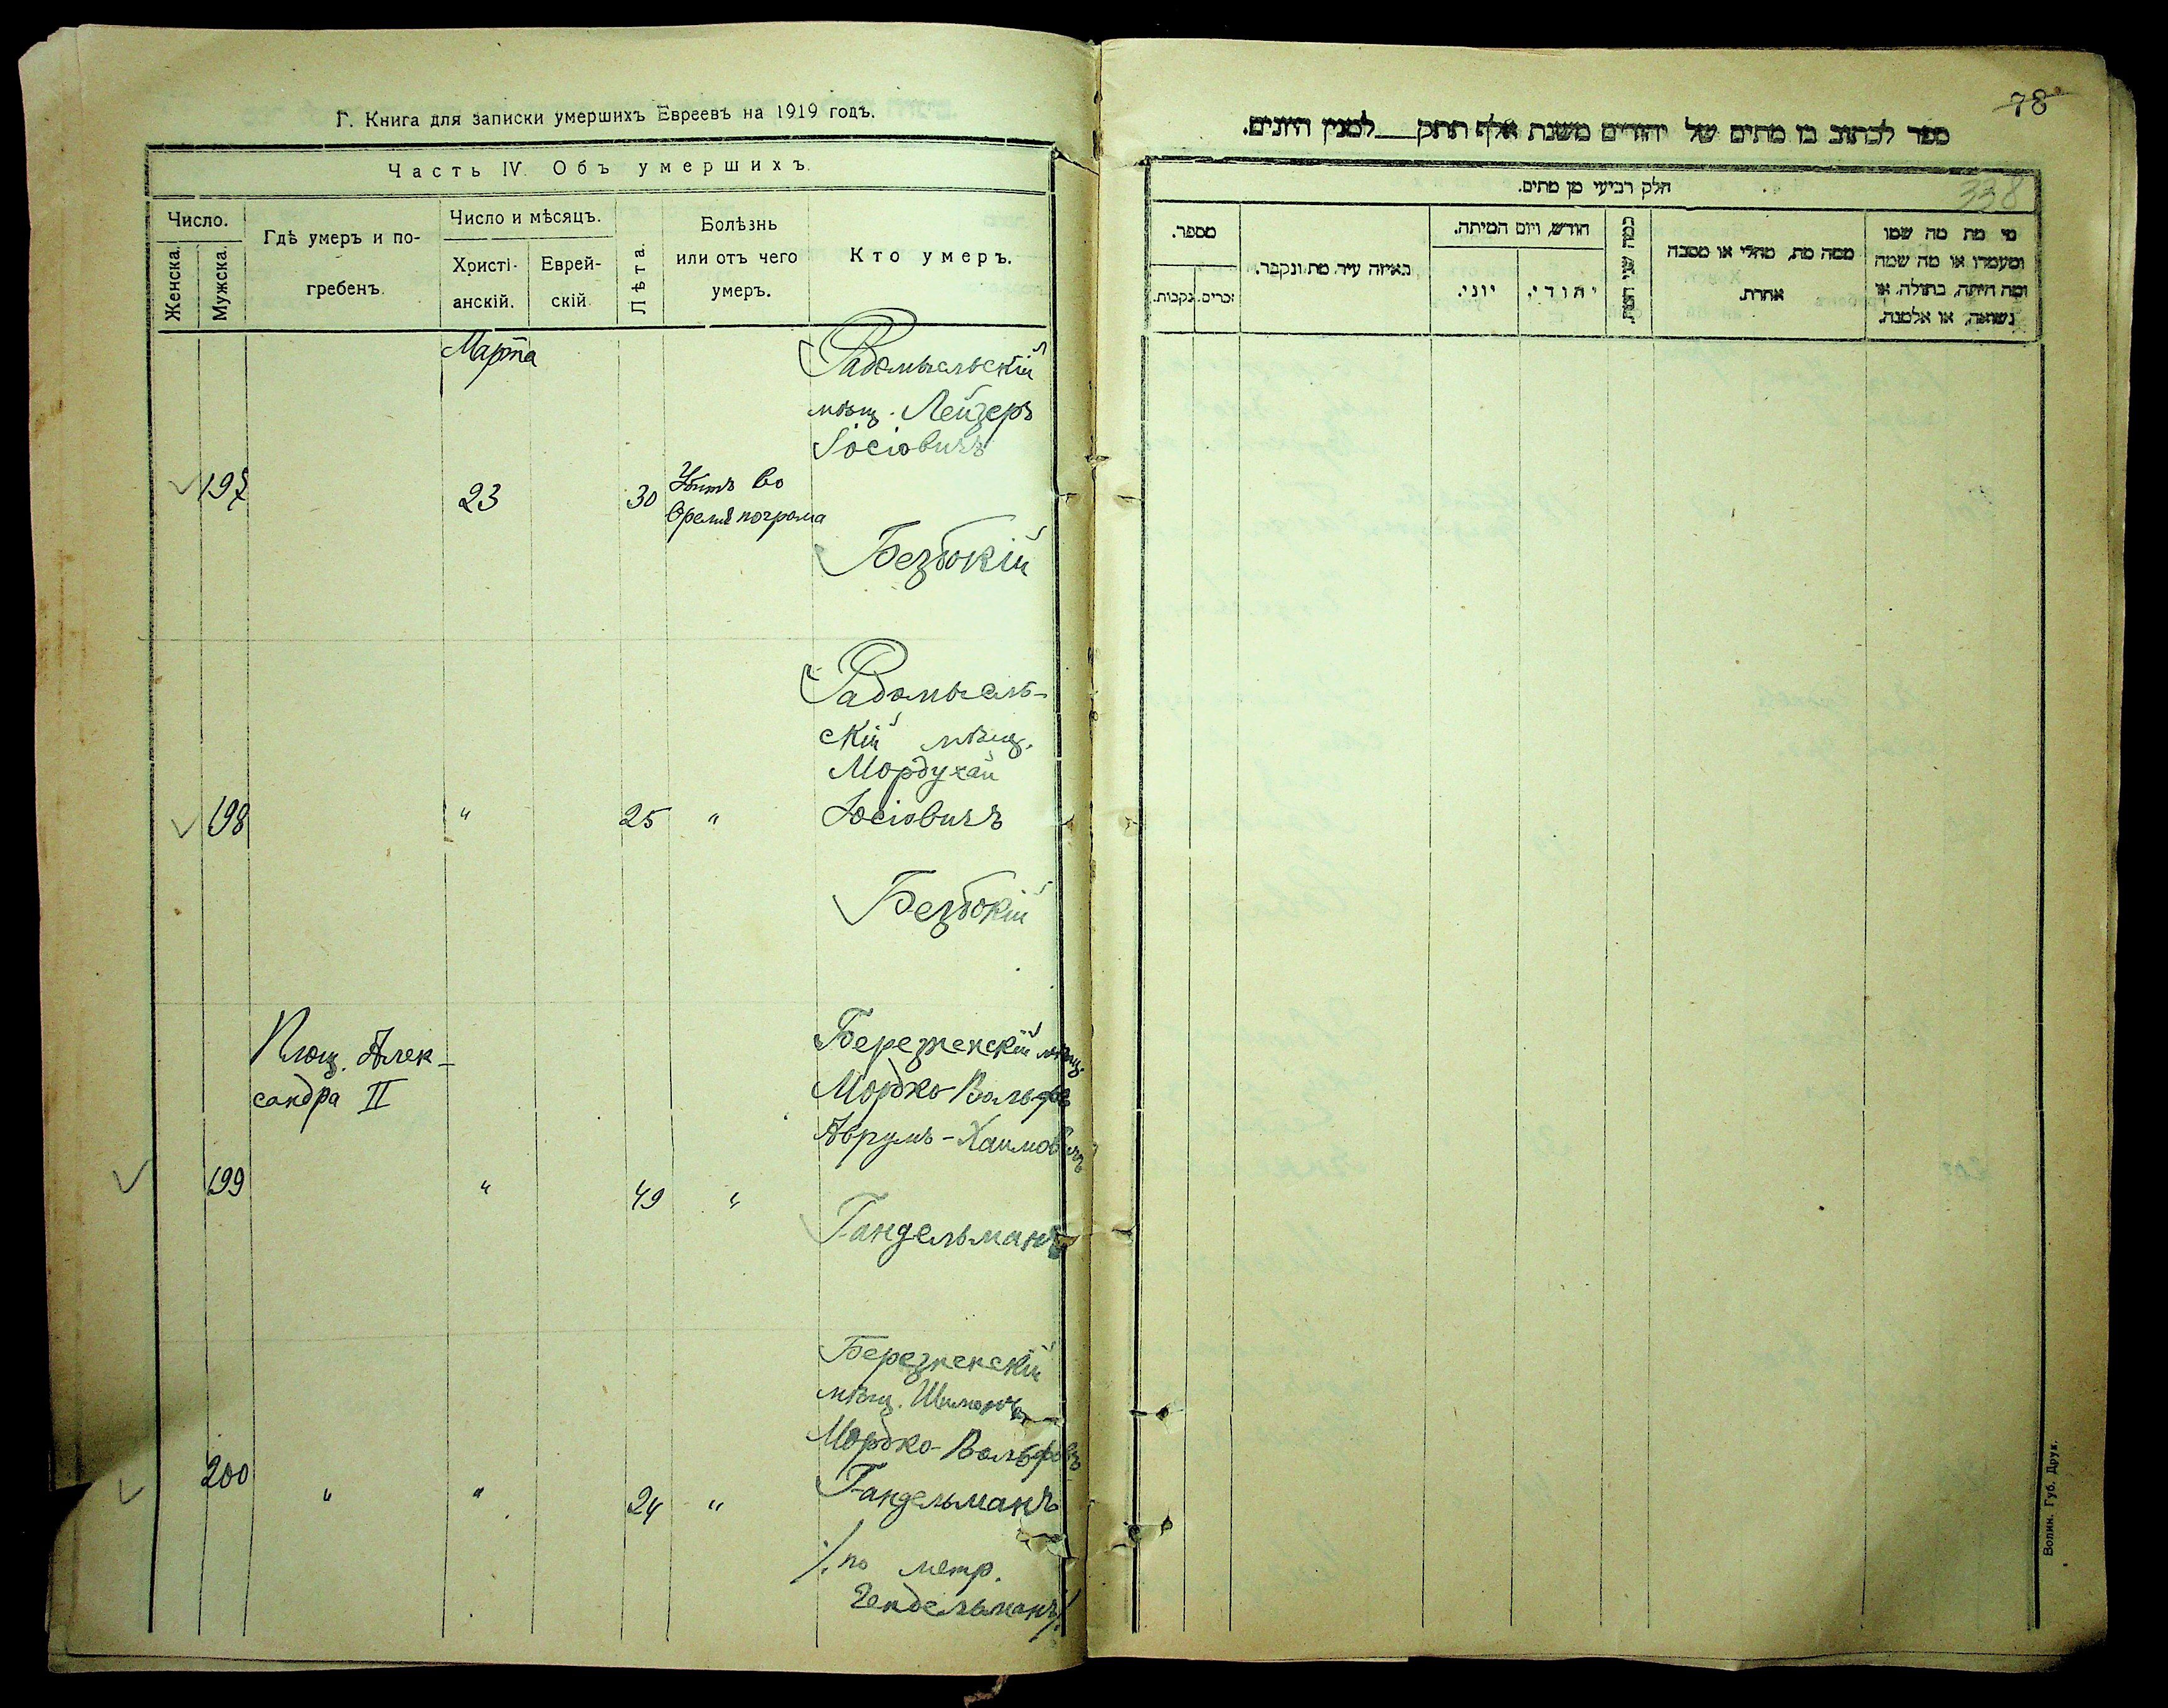 Г. Книга для записки умершихъ Евреевъ на 1919 годъ.
Часть IV. Объ умершихъ.
Число.
Женска.
Мужска.
Гдѣ умеръ и по-
гребенъ.
Число и мѣсяцъ.
Христі-
анскій.
Еврей-
скій.
Лѣта.
Болѣзнь
или отъ чего
умеръ.
Кто умеръ.
Марта
Радомысльскій
мѣщ. Лейзеръ
Іосіовичъ
197
23
30
Убитъ во
время погрома
Безбокій
Радомысль-
скій мѣщ.
Мордухай
198
"
25
"
Іосіовичъ
Безбокій
Площ. Алек-
сандра II
Береженскій мѣщ.
Мордко-Вольфъ
Аврумъ-Хаимовичъ
199
"
49
"
Гандельманъ
Березненскій
мѣщ. Шимонъ
Мордко-Вольфовъ
200
"
"
24
"
Гандельманъ
/по метр.
Гендельманъ/
78
338
ספר לכתוב בו מתים של יהודים משנת אלף תתק___למנין היונים.
חלק רביעי מן מתים.
מספר.
זכרים.
נקבות.
באיזה עיר מת ונקבר.
חודש, ויום המיתה.
יוני.
יהודי.
כמה שני המת.
ממה מת, מחלי או מסבה
אחרת.
מי מת מה שמו
ומעמדו או מה שמה
ומה היתה, בתולה, או
נשואה, או אלמנה.
Волин. Губ. Друк.